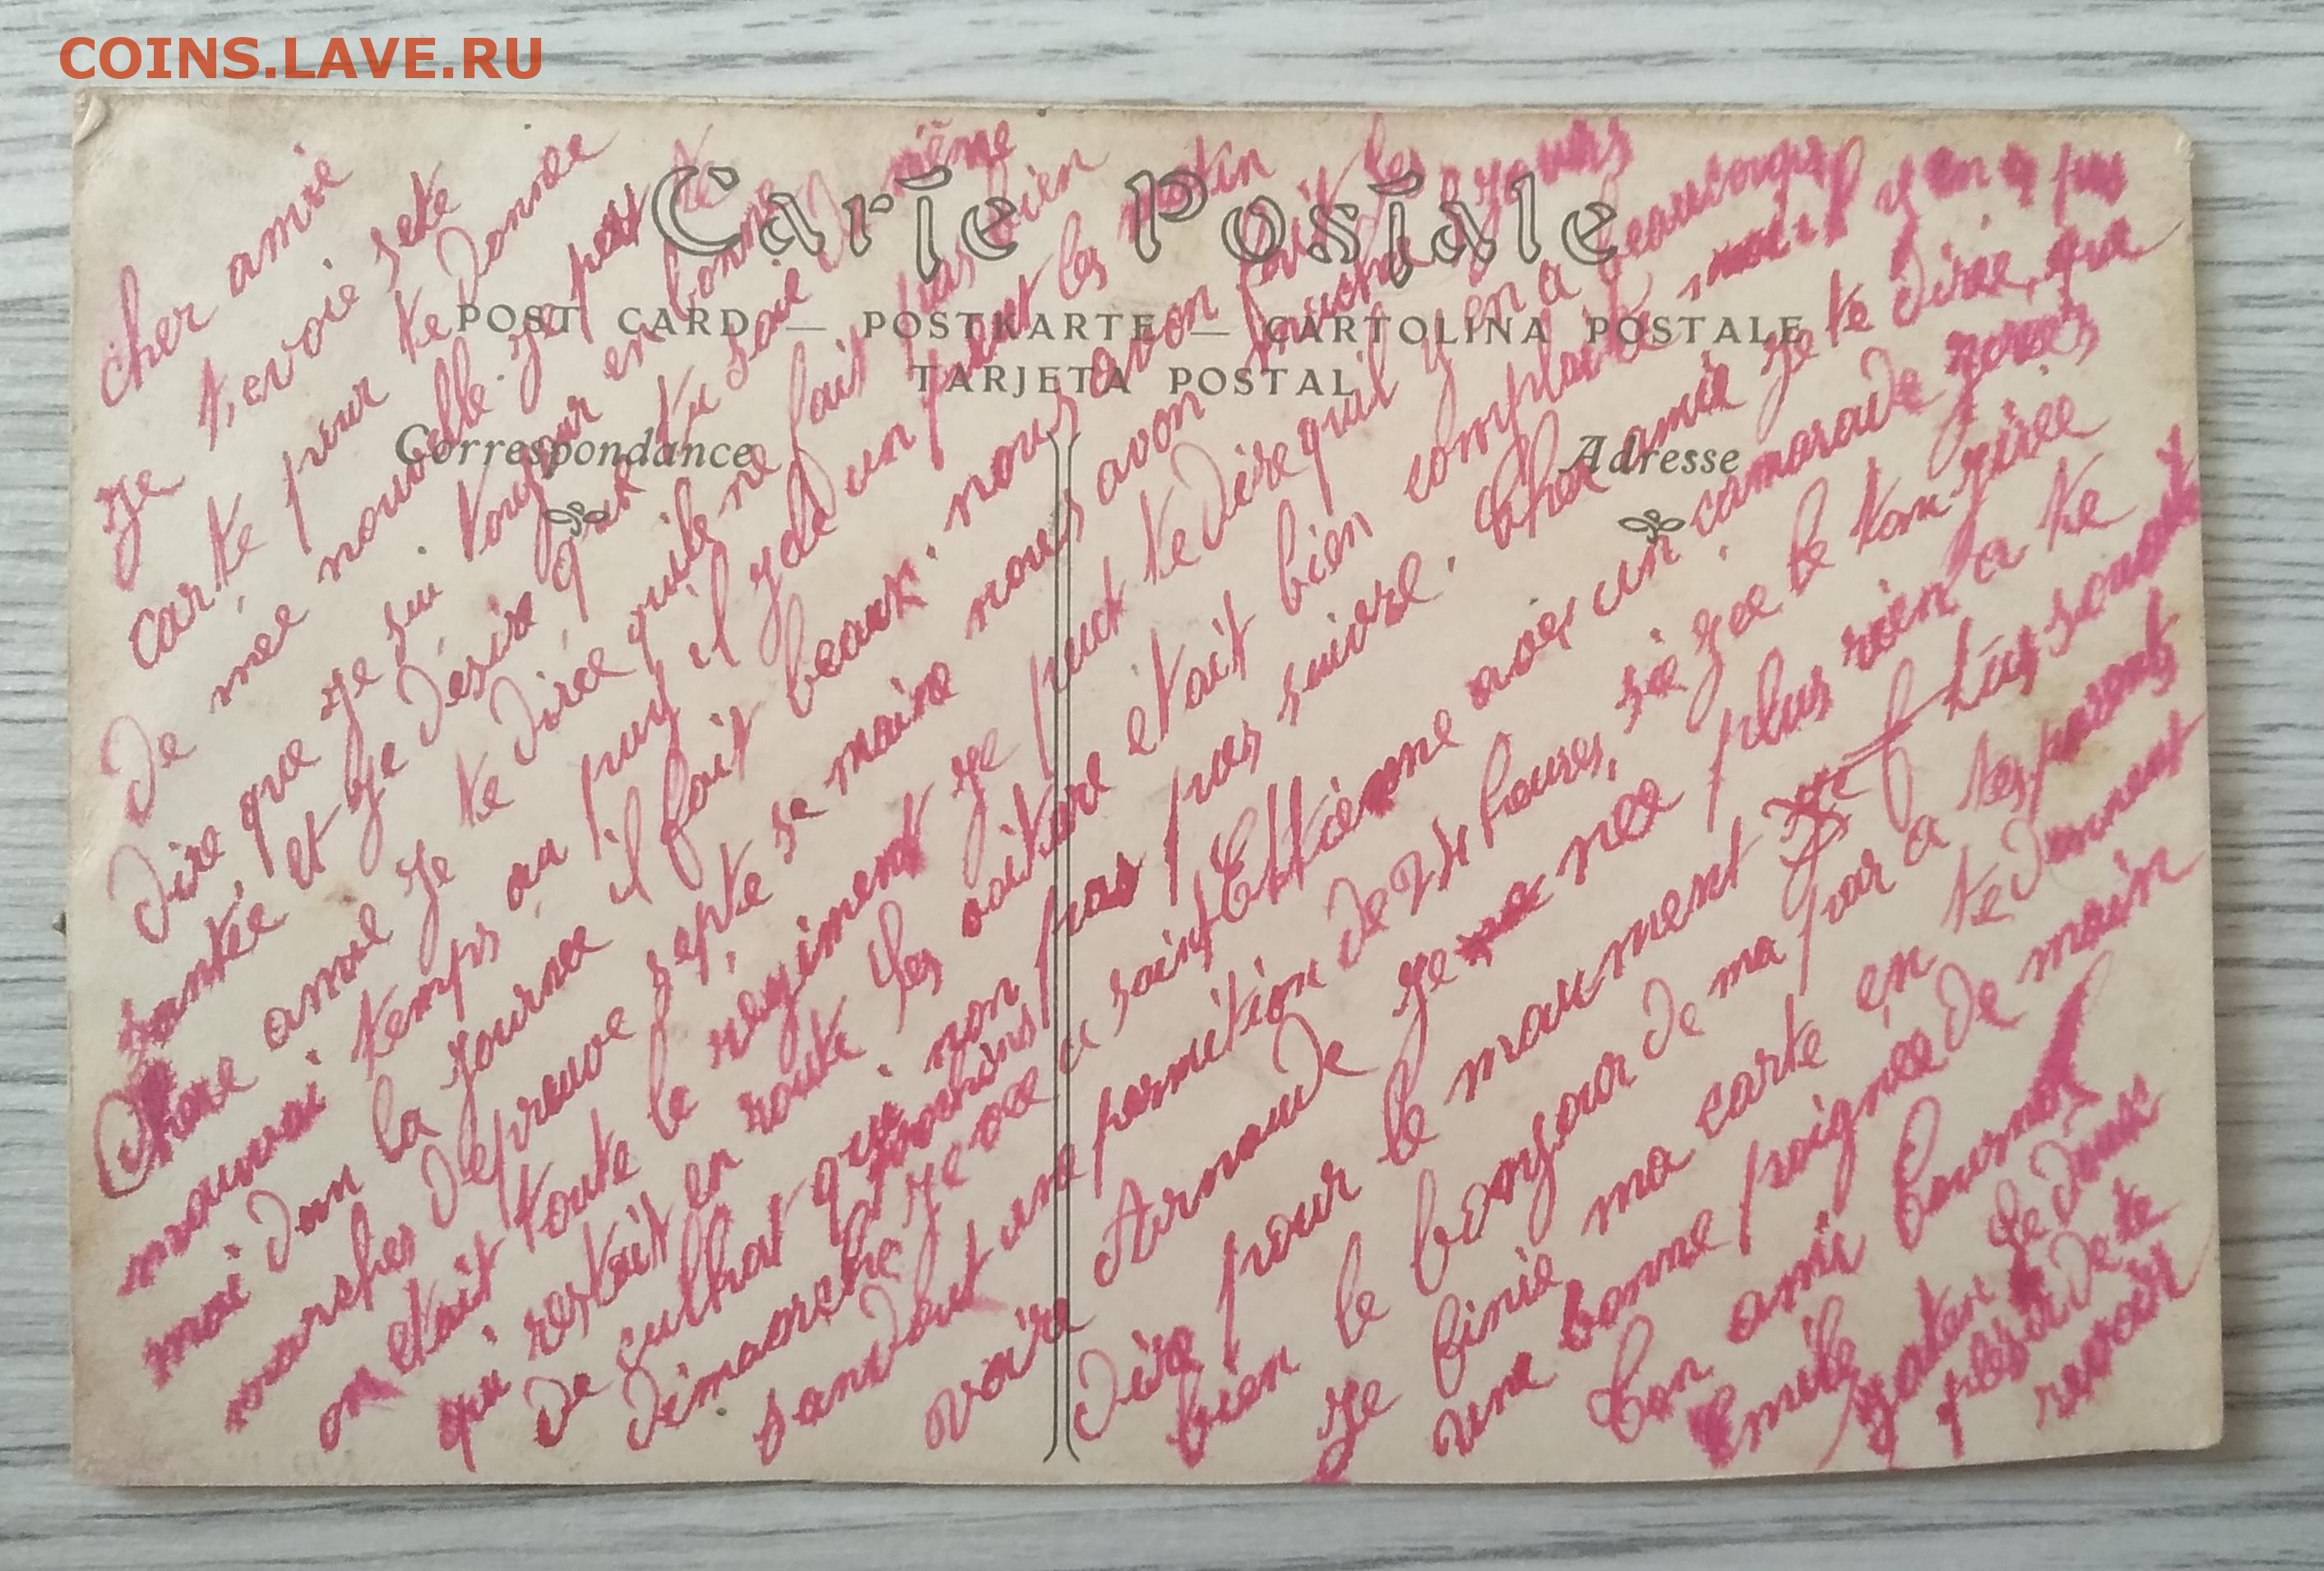 COINS.LAVE.RU
Carte Postale
POST CARD — POSTKARTE — CARTOLINA POSTALE
TARJETA POSTAL
Correspondance
Adresse
cher amie
Je t,envoie sete
carte pour te donnee
De mée nouvelle. Je peut te
Dire que je sui toujour en bonne
santée et je désire que tu soie de même
Chere amie Je te dire quile ne fait pas bien
mauvai temps au puy il y a un peut les matin
mai dan la journee il fait beaux. nous avon fait les
marches Depreuve septe se maine nous avon marche 4 jours
on etait toute le regiment Je peut te dire quil y en a beaucoup
qui restait en route les voiture etait bien complaite moi il y en a pas
De culhat qui non pas pus suivre. Cher amie Je te dire que
Dimanche prochins Je vae a saint Ettienne avec un camarade
sanDout une permition De 24 heures, sie jee le tem jirée
voire Arnaude Je nee plus rien a te
Dire pour le maument tus souoit
bien le bonjour De ma par a tes parents
Je finie ma carte en te Donnent
une bonne poignee De main
ton ami
Emile
De te
revoir